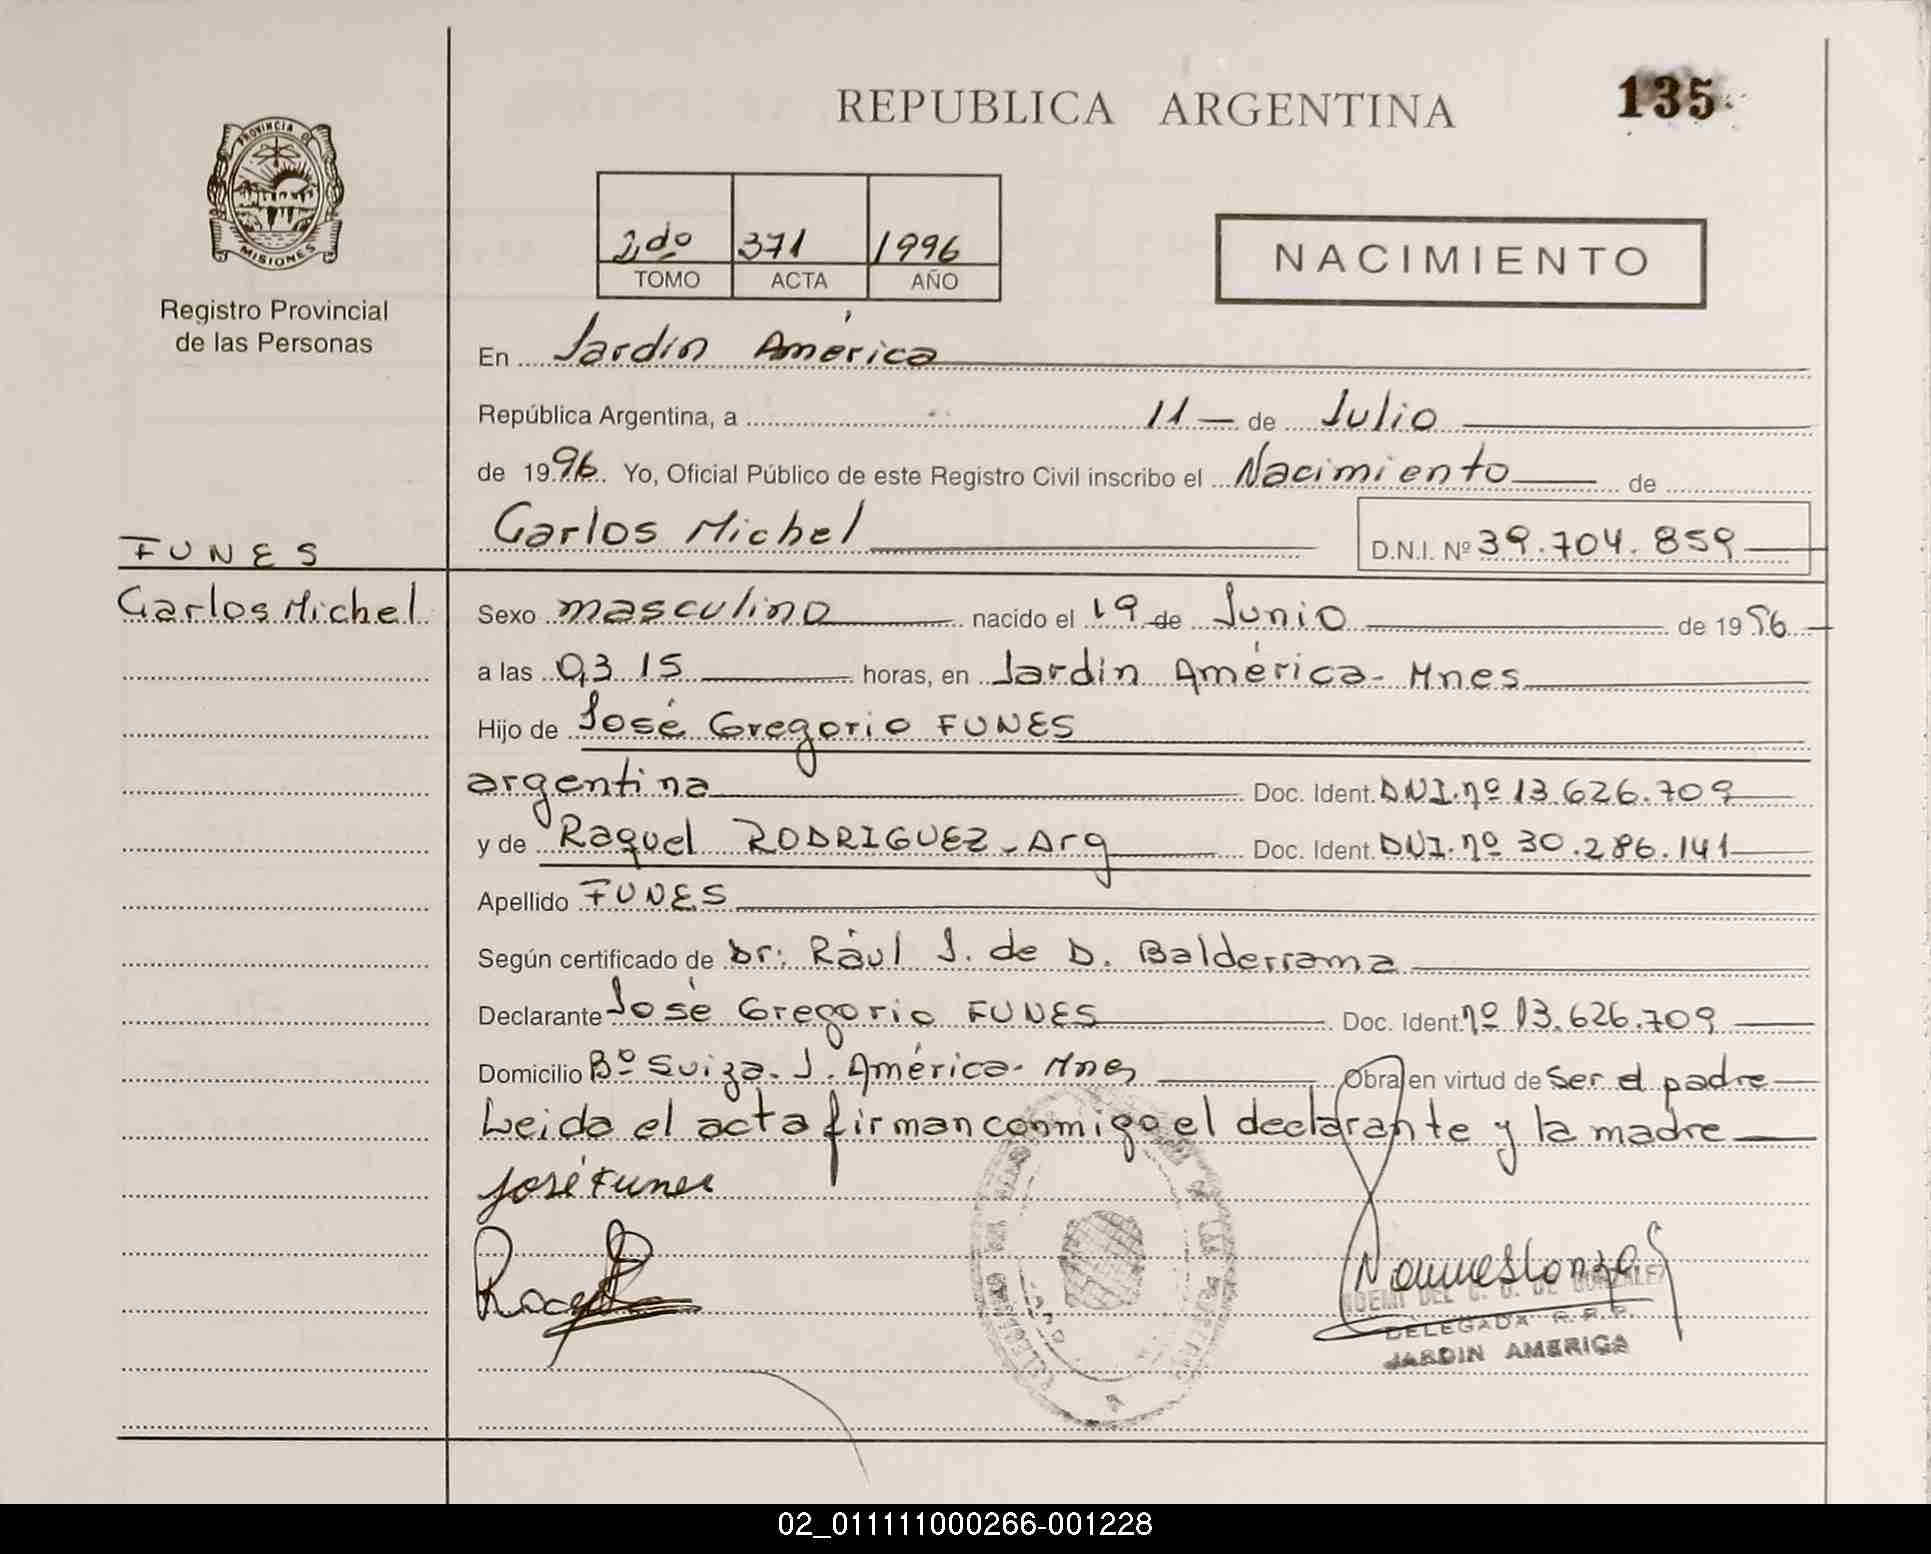 REPUBLICA ARGENTINA
135
PROVINCIA
MISIONES
Registro Provincial
de las Personas
2do 371 1996
TOMO ACTA AÑO
NACIMIENTO
En Jardín América
República Argentina, a 11 de Julio
de 1996 Yo, Oficial Público de este Registro Civil inscribo el Nacimiento de
Carlos Michel D.N.I. Nº 39.704.859
FUNES
Carlos Michel
Sexo masculino nacido el 19 de Junio de 1996
a las 03 15 horas, en Jardin América- Mnes
Hijo de José Gregorio FUNES
argentina Doc. Ident. DNI. nº 13.626.709
y de Raquel RODRIGUEZ - Arg Doc. Ident. DNI. nº 30.286.141
Apellido FUNES
Según certificado de Dr: Rául J. de D. Balderrama
Declarante José Gregorio FUNES Doc. Ident. nº 13.626.709
Domicilio Bº Suiza. J. América- Mnes Obra en virtud de Ser el padre
Leida el acta firman conmigo el declarante y la madre
José Funes
NOEMI DEL C. G. DE GONZALEZ
DELEGADA R.P.P.
JARDIN AMERICA
02_011111000266-001228